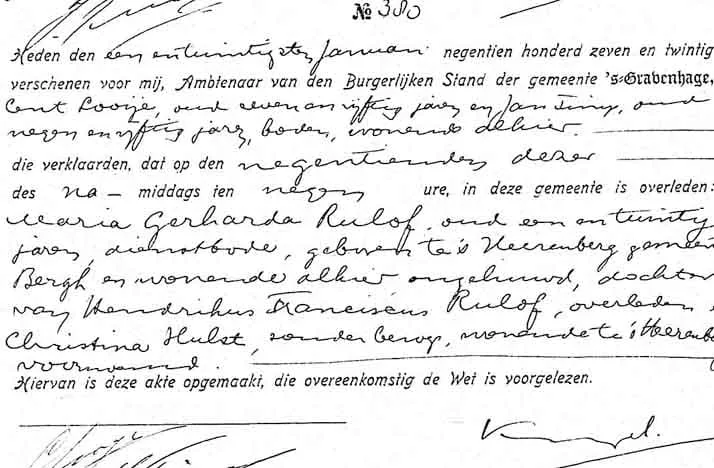 № 380
Heden den een en twintigsten Januari negentien honderd zeven en twintig
verschenen voor mij, Ambtenaar van den Burgerlijken Stand der gemeente 's-Gravenhage,
Cent Looije, oud zeven en vijftig jaren en Jan Timp, oud
negen en vijftig jaren, boden, wonende alhier.
die verklaarden, dat op den negentienden dezer
des na-middags ten negen ure, in deze gemeente is overleden:
Maria Gerharda Rulof, oud een en twintig
jaren, dienstbode, geboren te 's Heerenberg gemeen
Bergh en wonende alhier ongehuwd, dochter
van Hendrikus Franciscus Rulof, overleden
Christina Hulst, zonder beroep, wonende te 's Heerenbe
voornoemd.
Hiervan is deze akte opgemaakt, die overeenkomstig de Wet is voorgelezen.